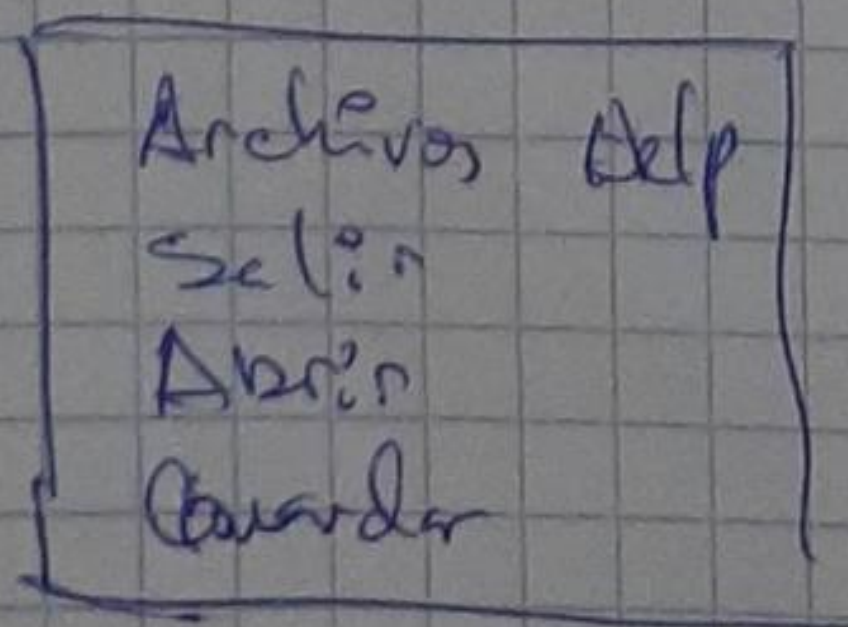 Archivos Help
Salir
Abrir
Guardar